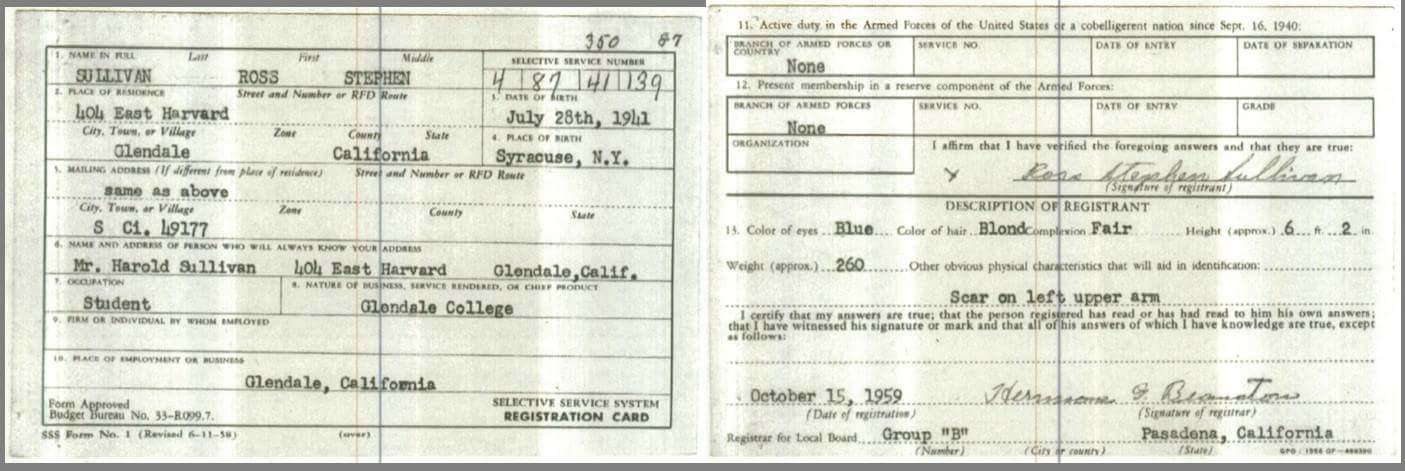 350 87
1. NAME IN FULL Last First Middle
SELECTIVE SERVICE NUMBER
SULLIVAN ROSS STEPHEN
4 87 41 139
2. PLACE OF RESIDENCE Street and Number or RFD Route
3. DATE OF BIRTH
404 East Harvard
July 28th, 1941
City, Town, or Village Zone County State
4. PLACE OF BIRTH
Glendale California
Syracuse, N.Y.
5. MAILING ADDRESS (If different from place of residence) Street and Number or RFD Route
same as above
City, Town, or Village Zone County State
S Ci. 49177
6. NAME AND ADDRESS OF PERSON WHO WILL ALWAYS KNOW YOUR ADDRESS
Mr. Harold Sullivan 404 East Harvard Glendale,Calif.
7. OCCUPATION
8. NATURE OF BUSINESS, SERVICE RENDERED, OR CHIEF PRODUCT
Student
Glendale College
9. FIRM OR INDIVIDUAL BY WHOM EMPLOYED
10. PLACE OF EMPLOYMENT OR BUSINESS
Glendale, California
Form Approved
Budget Bureau No. 33-R099.7.
SELECTIVE SERVICE SYSTEM
REGISTRATION CARD
SSS Form No. 1 (Revised 6-11-58) (over)
11. Active duty in the Armed Forces of the United States or a cobelligerent nation since Sept. 16, 1940:
BRANCH OF ARMED FORCES OR COUNTRY SERVICE NO. DATE OF ENTRY DATE OF SEPARATION
None
12. Present membership in a reserve component of the Armed Forces:
BRANCH OF ARMED FORCES SERVICE NO. DATE OF ENTRY GRADE
None
ORGANIZATION
I affirm that I have verified the foregoing answers and that they are true:
x Ross Stephen Sullivan
(Signature of registrant)
DESCRIPTION OF REGISTRANT
13. Color of eyes Blue Color of hair Blond Complexion Fair Height (approx.) 6 ft. 2 in.
Weight (approx.) 260 Other obvious physical characteristics that will aid in identification:
Scar on left upper arm
I certify that my answers are true; that the person registered has read or has had read to him his own answers;
that I have witnessed his signature or mark and that all of his answers of which I have knowledge are true, except
as follows:
October 15, 1959
(Date of registration) (Signature of registrar)
Registrar for Local Board Group "B" Pasadena, California
(Number) (City or county) (State)